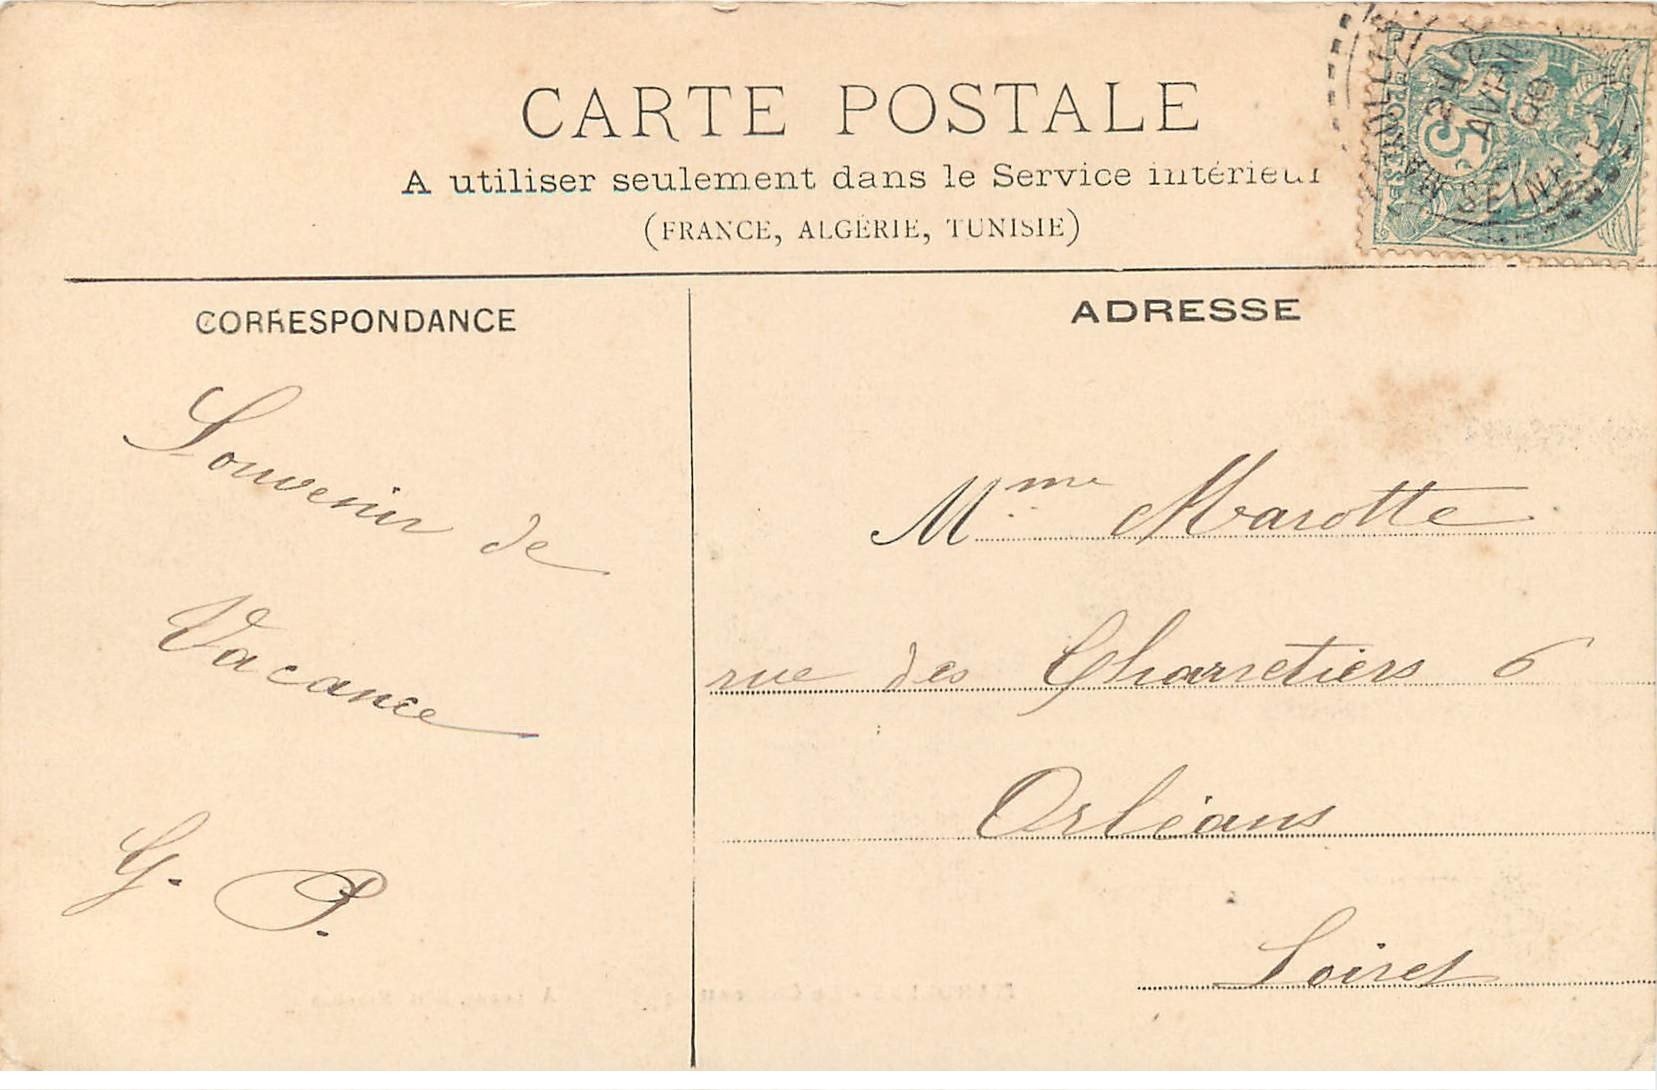 CARTE POSTALE
A utiliser seulement dans le Service intérieur
(FRANCE, ALGÉRIE, TUNISIE)
CORRESPONDANCE
Souvenir de
Vacance
G. P.
ADRESSE
Mme Marotte
rue des Charretiers 6
Orléans
Loiret
5
AVRIL
SEINE